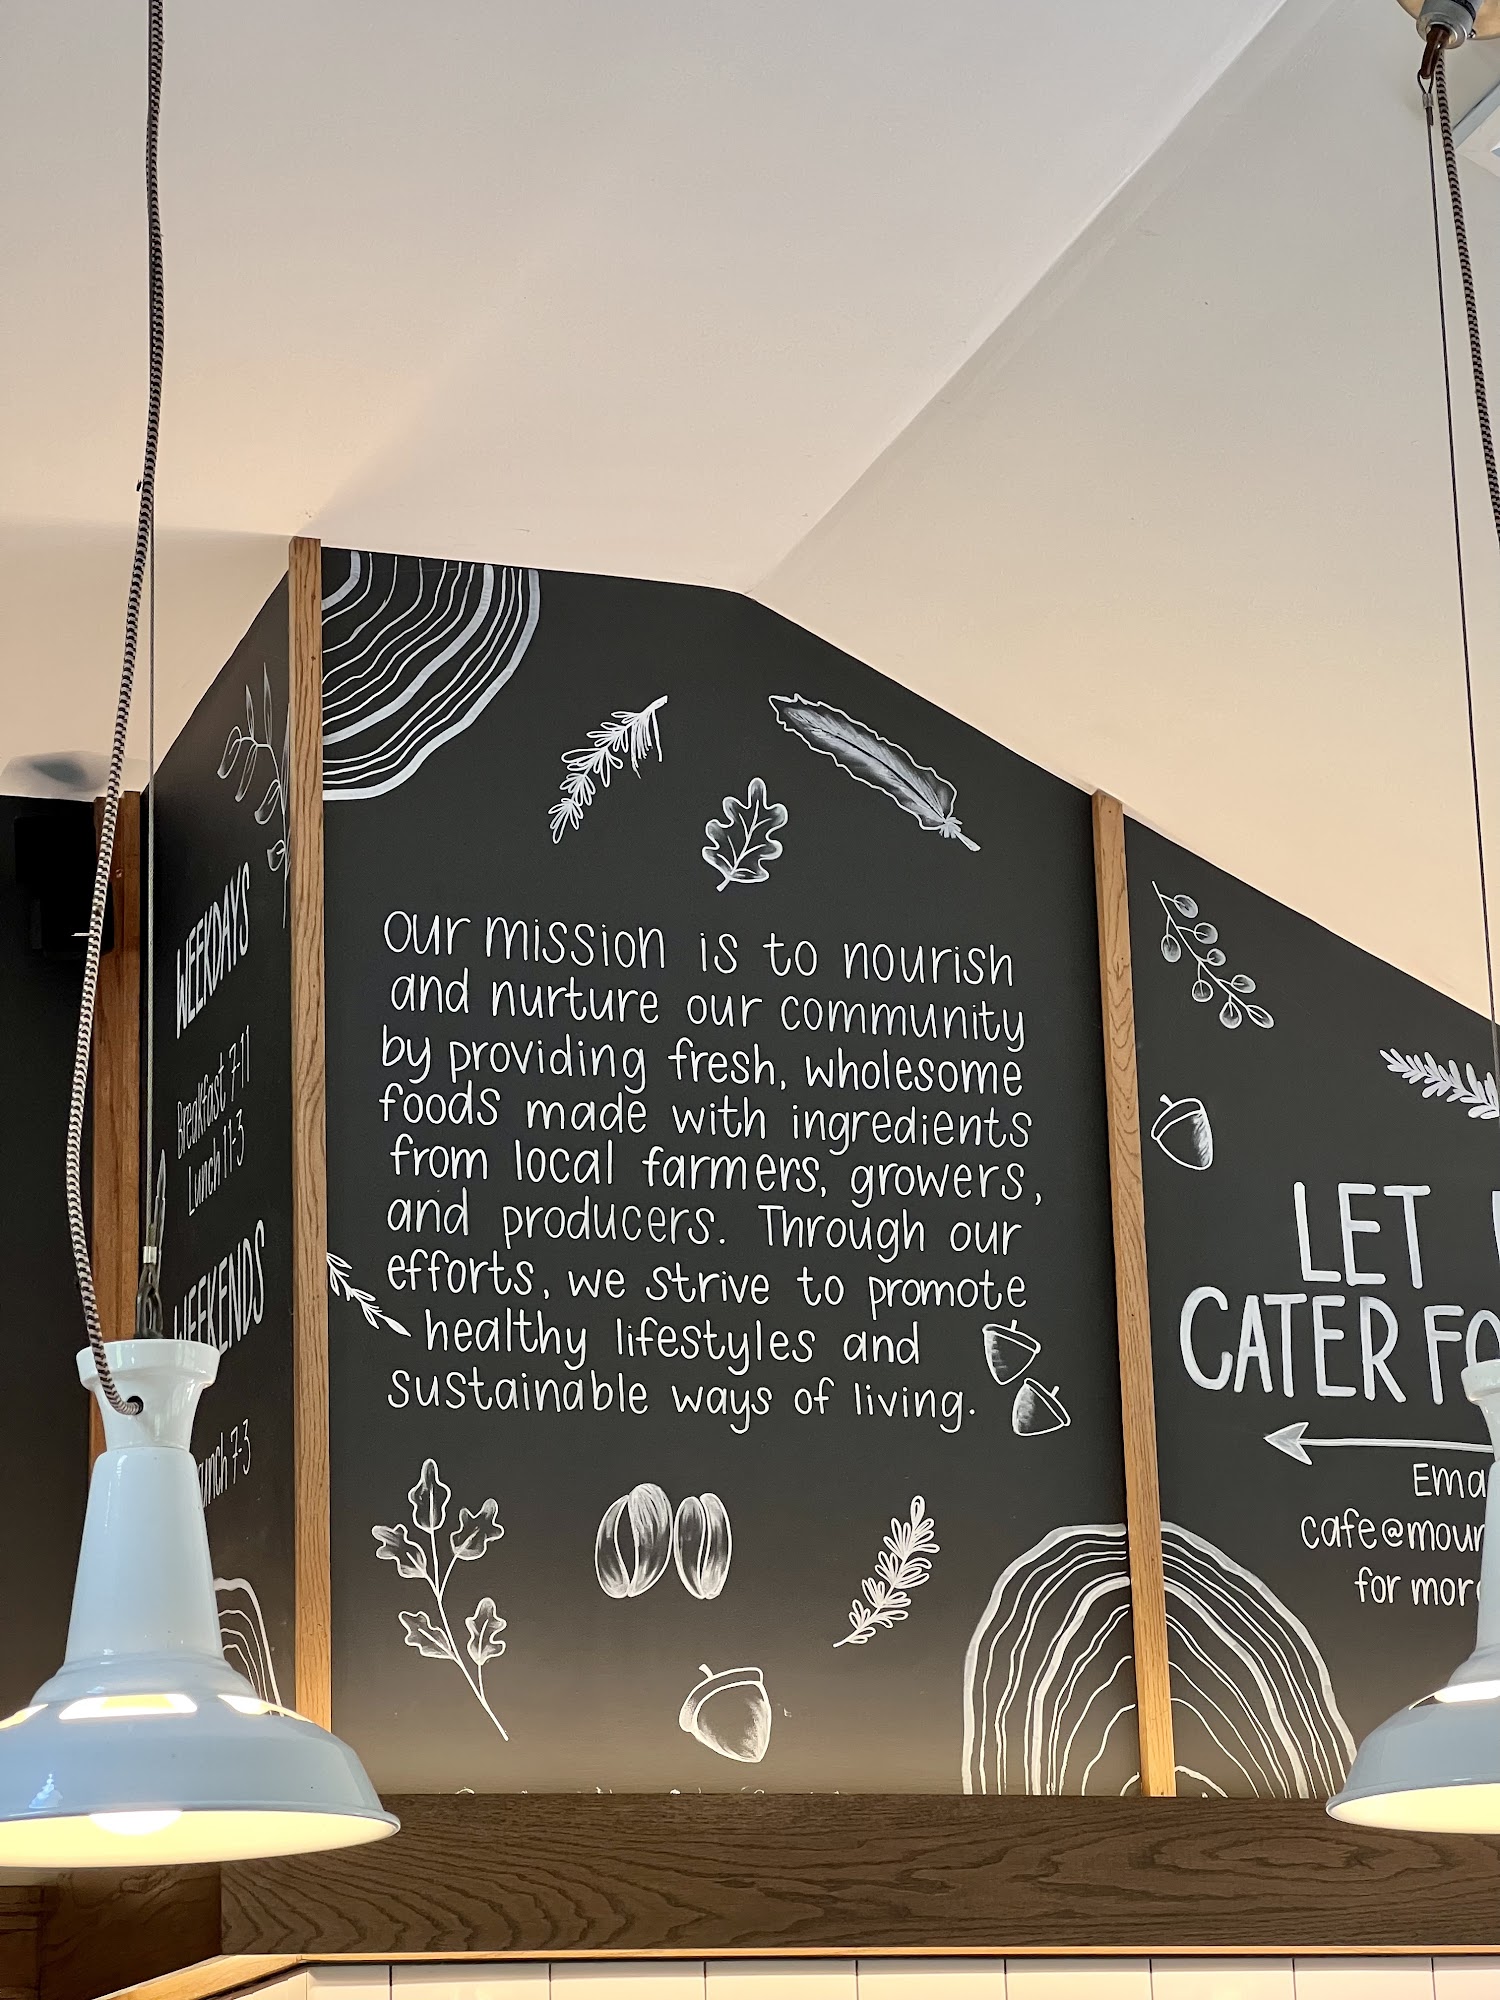 WEEKDAYS
Breakfast 7-11
Lunch 11-3
WEEKENDS
7-3
our mission is to nourish
and nurture our community
by providing fresh, wholesome
foods made with ingredients
from local farmers, growers,
and producers. Through our
efforts, we strive to promote
healthy lifestyles and
sustainable ways of living.
LET
CATER
cafe@moun
for